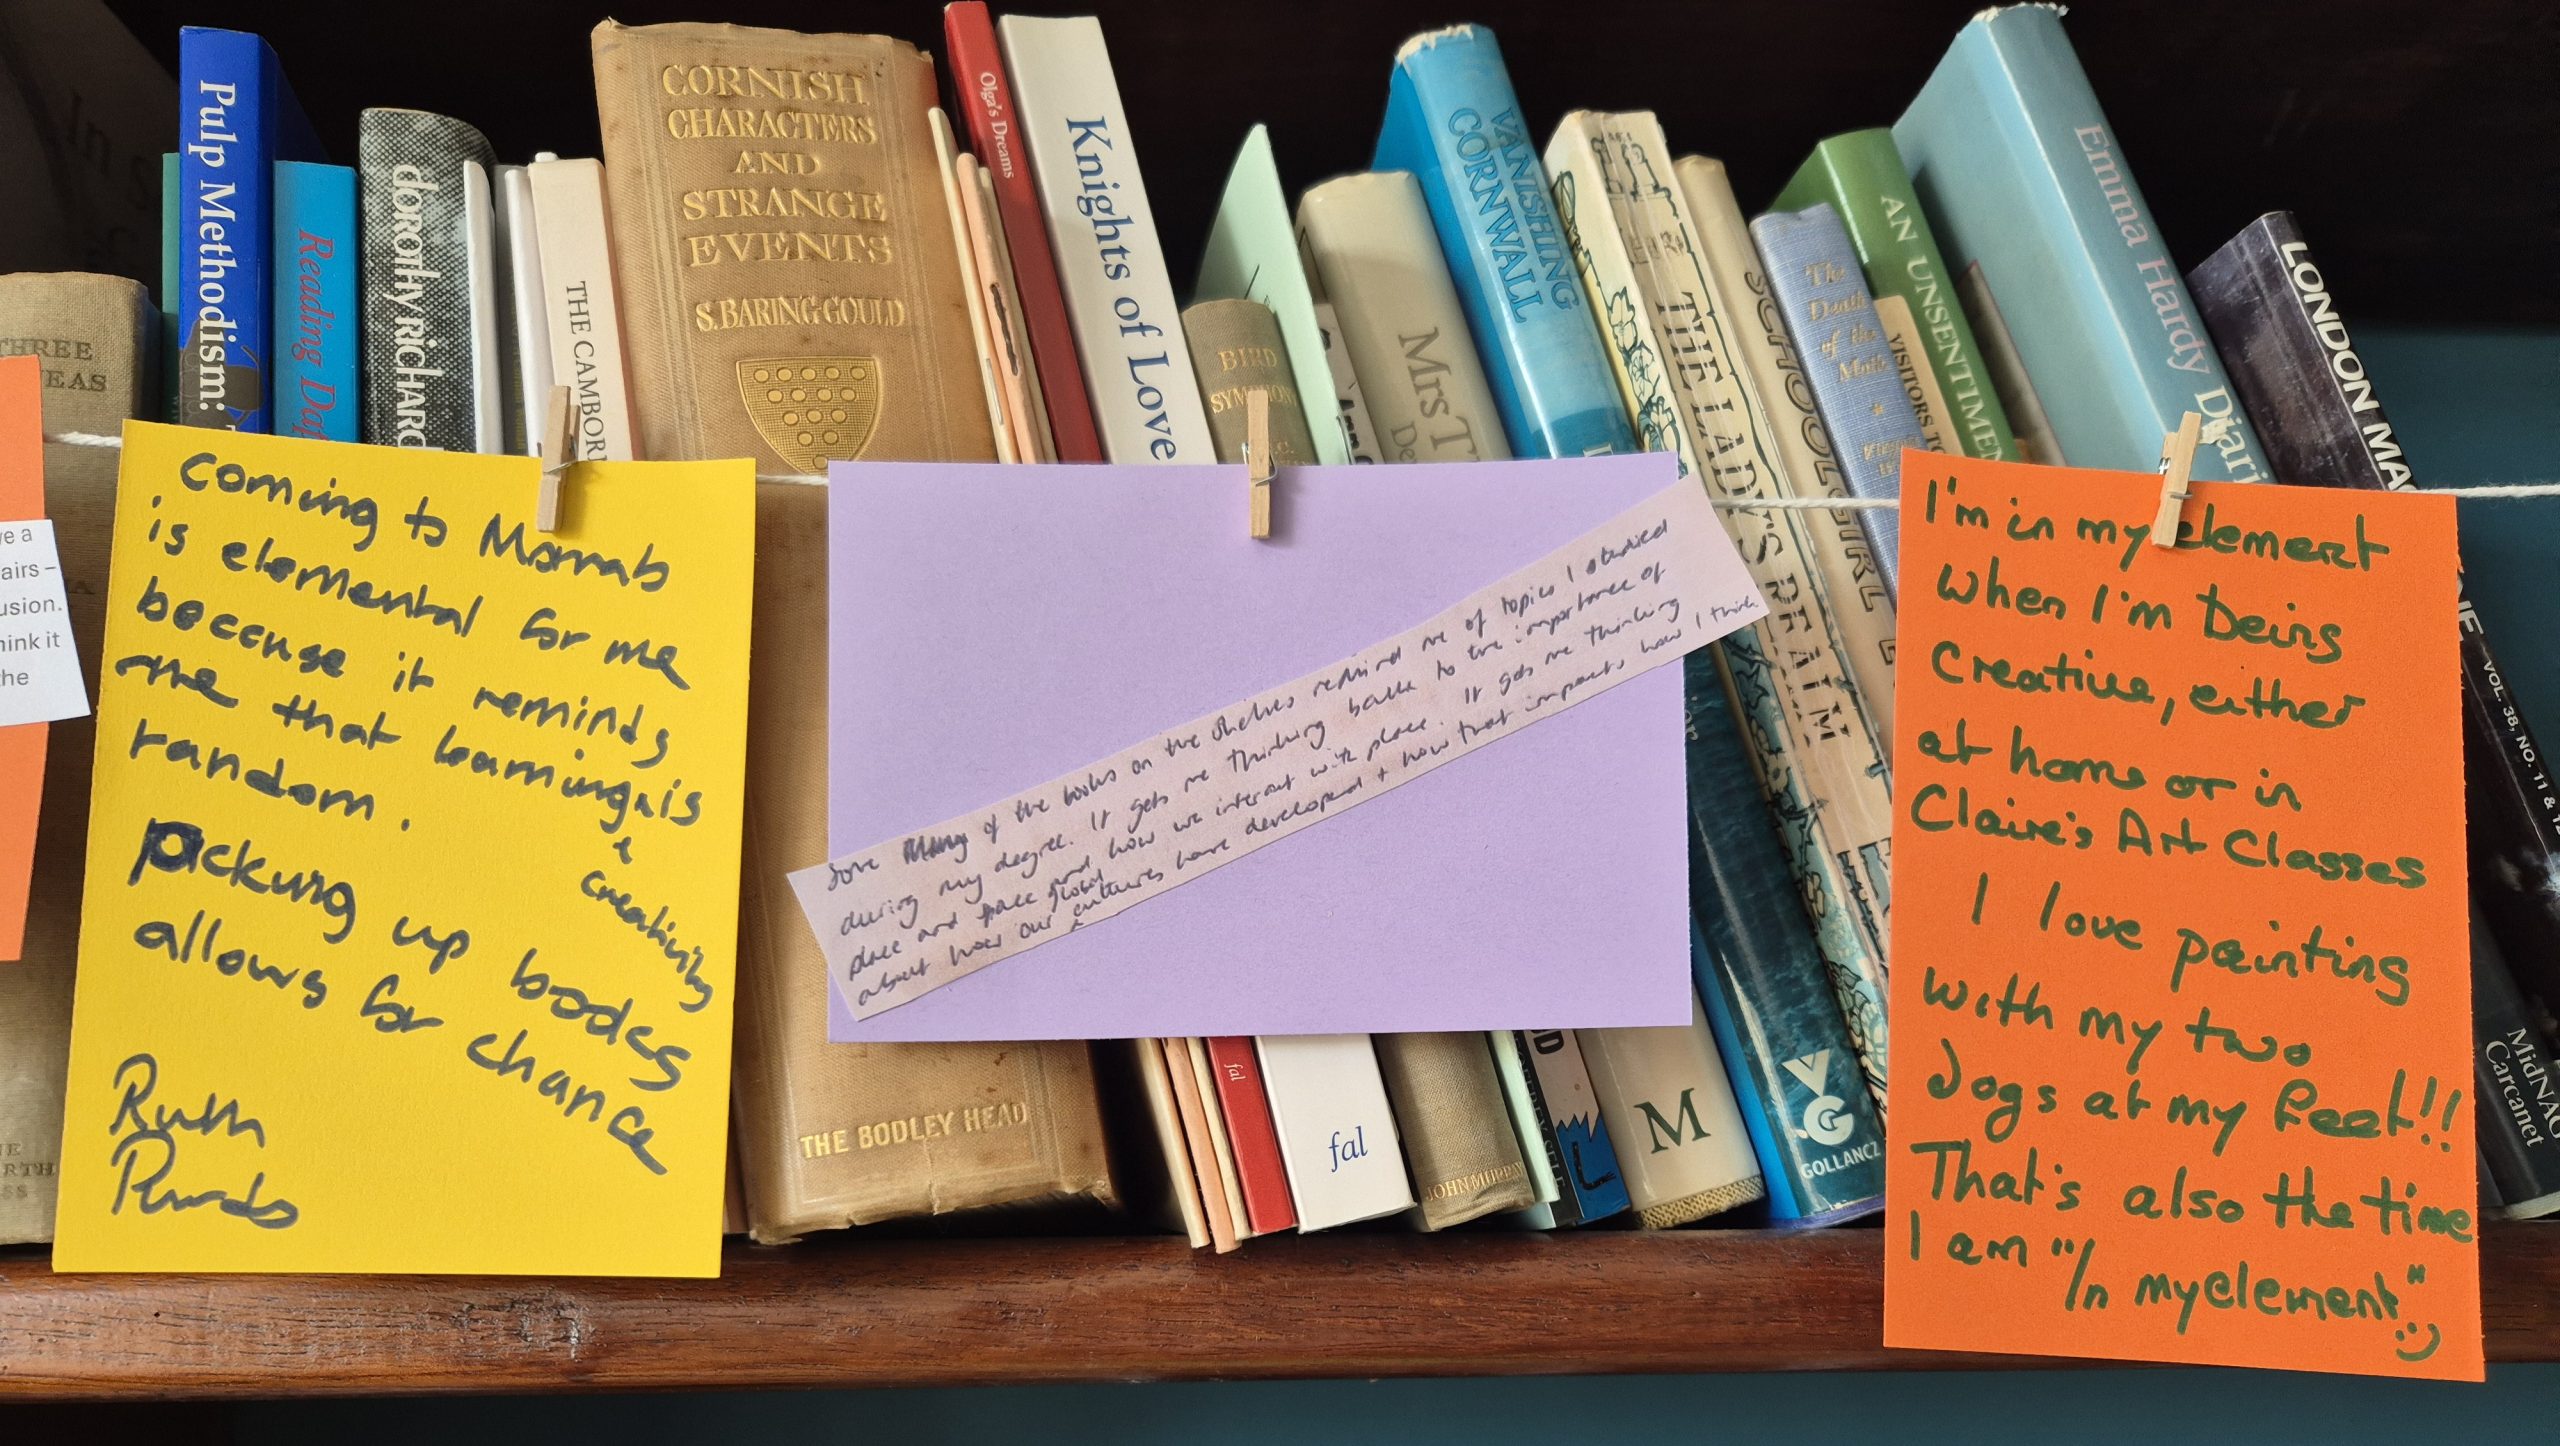 THREE
EAS
Pulp Methodism:
Reading Daf
dorothy RICHARD
THE CAMBORN
CORNISH
CHARACTERS
AND
STRANGE
EVENTS
S. BARING-GOULD
THE BODLEY HEAD
Olga's Dreams
fal
Knights of Love
fal
BIRD
SYMPHONY
JOHN MURRAY
Mrs T
De
M
VANISHING
CORNWALL
V
G
GOLLANCZ
THE LADY'S REALM
SCHOOLGIRL
The
Death
of the
Moth
VISITORS TO
AN UNSENTIMEN
Emma Hardy Diari
LONDON MA
VOL. 38, NO. 11 & 12
MidNAG
Carcanet
ve a
airs –
usion.
hink it
the
Coming to Morrab
is elemental for me
because it reminds
me that learning is
& creativity
random.
Picking up books
allows for chance
Ruth
Some of the books on the shelves remind me of topics I studied
during my degree. It gets me thinking back to the importance of
place and space and how we interact with place. It gets me thinking
about how our global cultures have developed + how that impacts how I think
I'm in my element
when I'm being
creative, either
at home or in
Claire's Art Classes
I love painting
with my two
dogs at my feet!!
That's also the time
I am "In my element"
:)